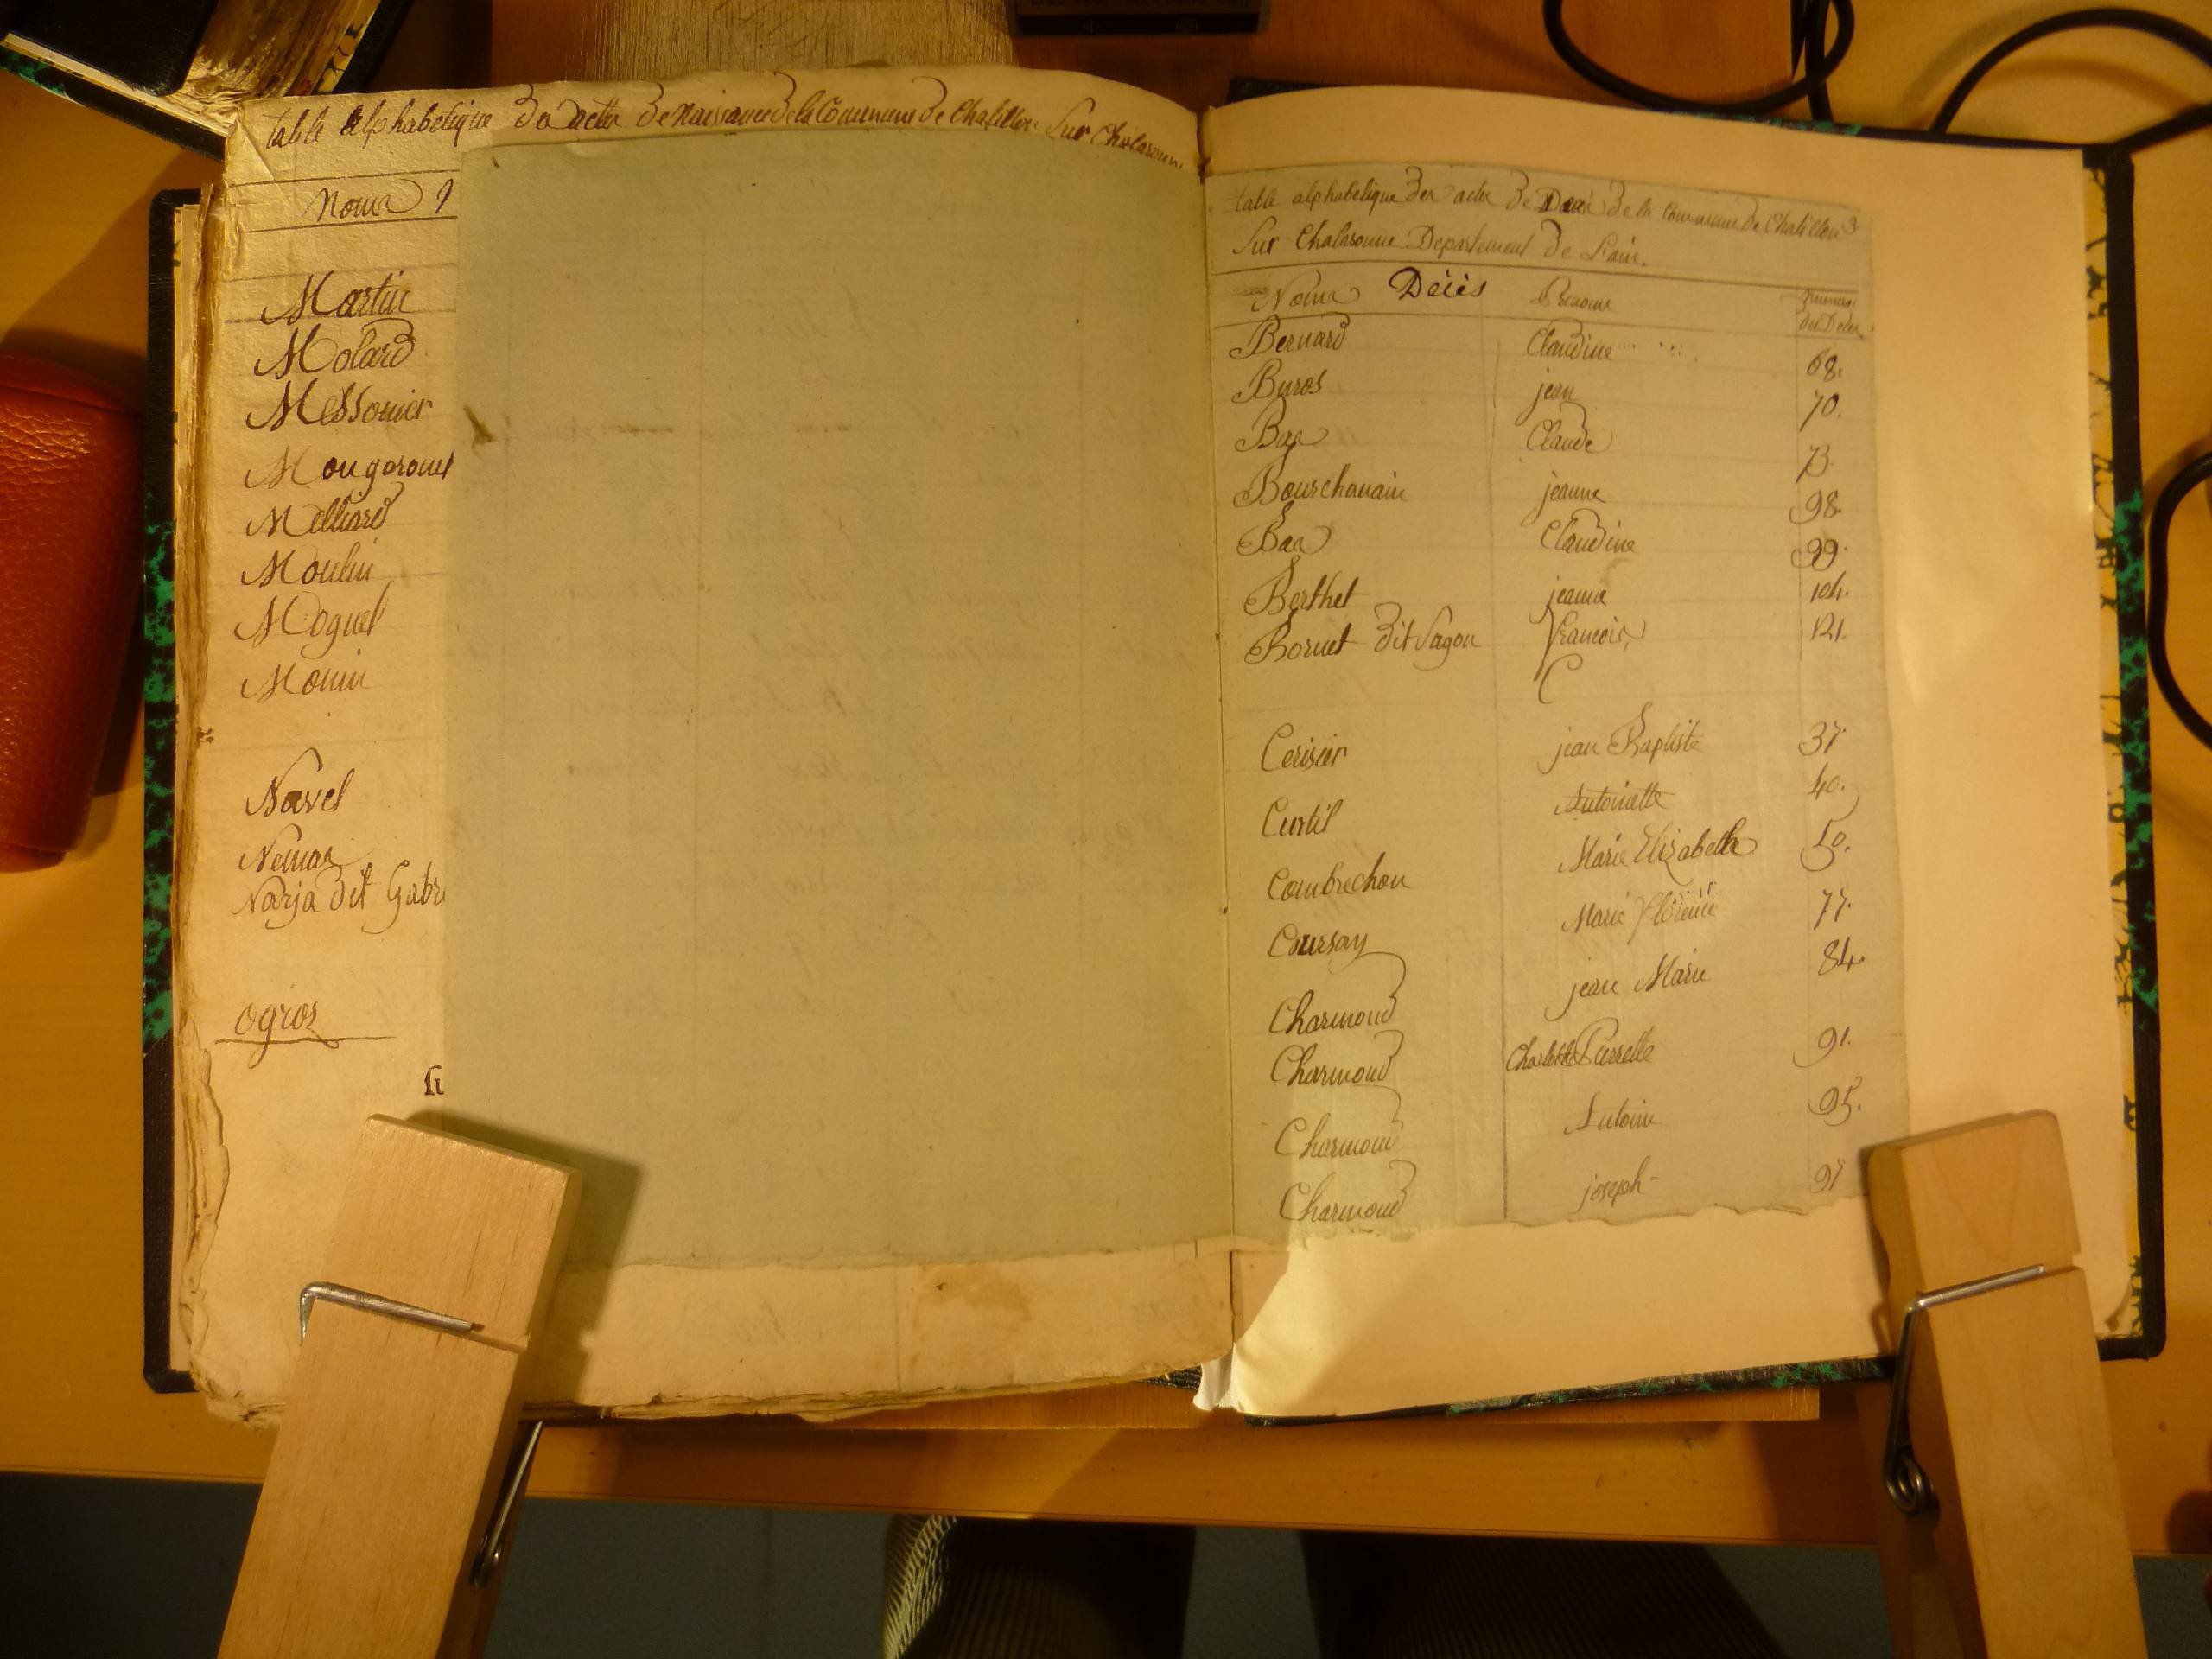 table alphabetique des actes de Naissance de la Commune de Chatillon Sur Chalaronne
Noms
Martin
Molard
Messonier
Mougaront
Milliard
Moulin
Moguet
Monin
Navel
Nemar
Narja dit Gabr
ogros
table alphabetique des actes de Décès de la Commune de Chatillon
Sur Chalaronne Departement de L'ain.
Noms Décès Prenoms Numeros
des Décès
Bernard Claudine 68.
Buros jean 70.
Claude 73.
Bourchanain jeanne 98.
Claudine 99.
Berthet jeanne 104.
Bornet dit Sagon Francois 121.
C
Cerisier jean Baptiste 37.
Curtil Antoinette 40.
Combrechon Marie Elizabeth 50.
Coursay Marie Florence 77.
Charmond jean Marie 84.
Charmond Charlotte Pierrette 91.
Charmond Antoine 95.
Charmond joseph 97